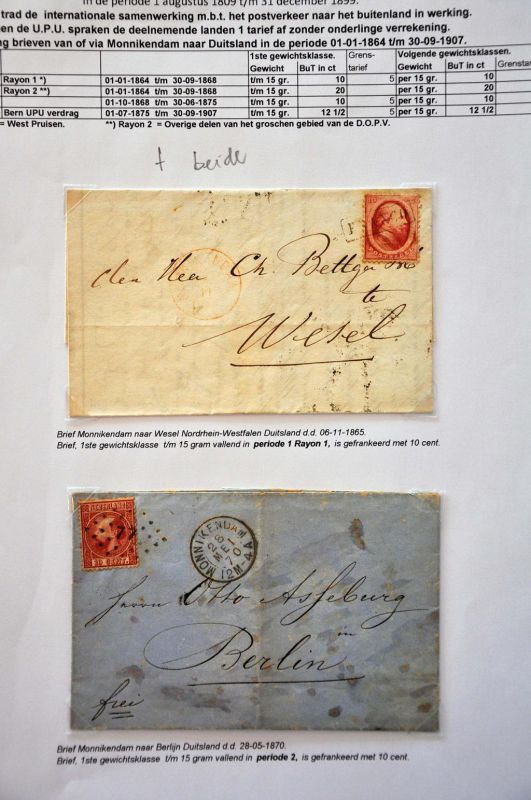 in de periode 1 augustus 1809 t/m 31 december 1899.
trad de internationale samenwerking m.b.t. het postverkeer naar het buitenland in werking.
en de U.P.U. spraken de deelnemende landen 1 tarief af zonder onderlinge verrekening.
ng brieven van of via Monnikendam naar Duitsland in de periode 01-01-1864 t/m 30-09-1907.
1ste gewichtsklasse. Grens- Volgende gewichtsklassen.
Gewicht BuT in ct tarief Gewicht BuT in ct Grenstar
Rayon 1 *) 01-01-1864 t/m 30-09-1868 t/m 15 gr. 10 5 per 15 gr. 10
Rayon 2 **) 01-01-1864 t/m 30-09-1868 t/m 15 gr. 20 per 15 gr. 20
01-10-1868 t/m 30-06-1875 t/m 15 gr. 10 per 15 gr. 10
Bern UPU verdrag 01-07-1875 t/m 30-09-1907 t/m 15 gr. 12 1/2 5 per 15 gr. 12 1/2
= West Pruisen. **) Rayon 2 = Overige delen van het groschen gebied van de D.O.P.V.
f beide
den Heer Ch. Bettger
te
Wesel
Brief Monnikendam naar Wesel Nordrhein-Westfalen Duitsland d.d. 06-11-1865.
Brief, 1ste gewichtsklasse t/m 15 gram vallend in periode 1 Rayon 1, is gefrankeerd met 10 cent.
NEDERLAND
10 CENT
MONNIKENDAM
28
MEI
70
12M-4A
Herrn Otto Asseburg
in
Berlin
frei
Brief Monnikendam naar Berlijn Duitsland d.d. 28-05-1870.
Brief, 1ste gewichtsklasse t/m 15 gram vallend in periode 2, is gefrankeerd met 10 cent.